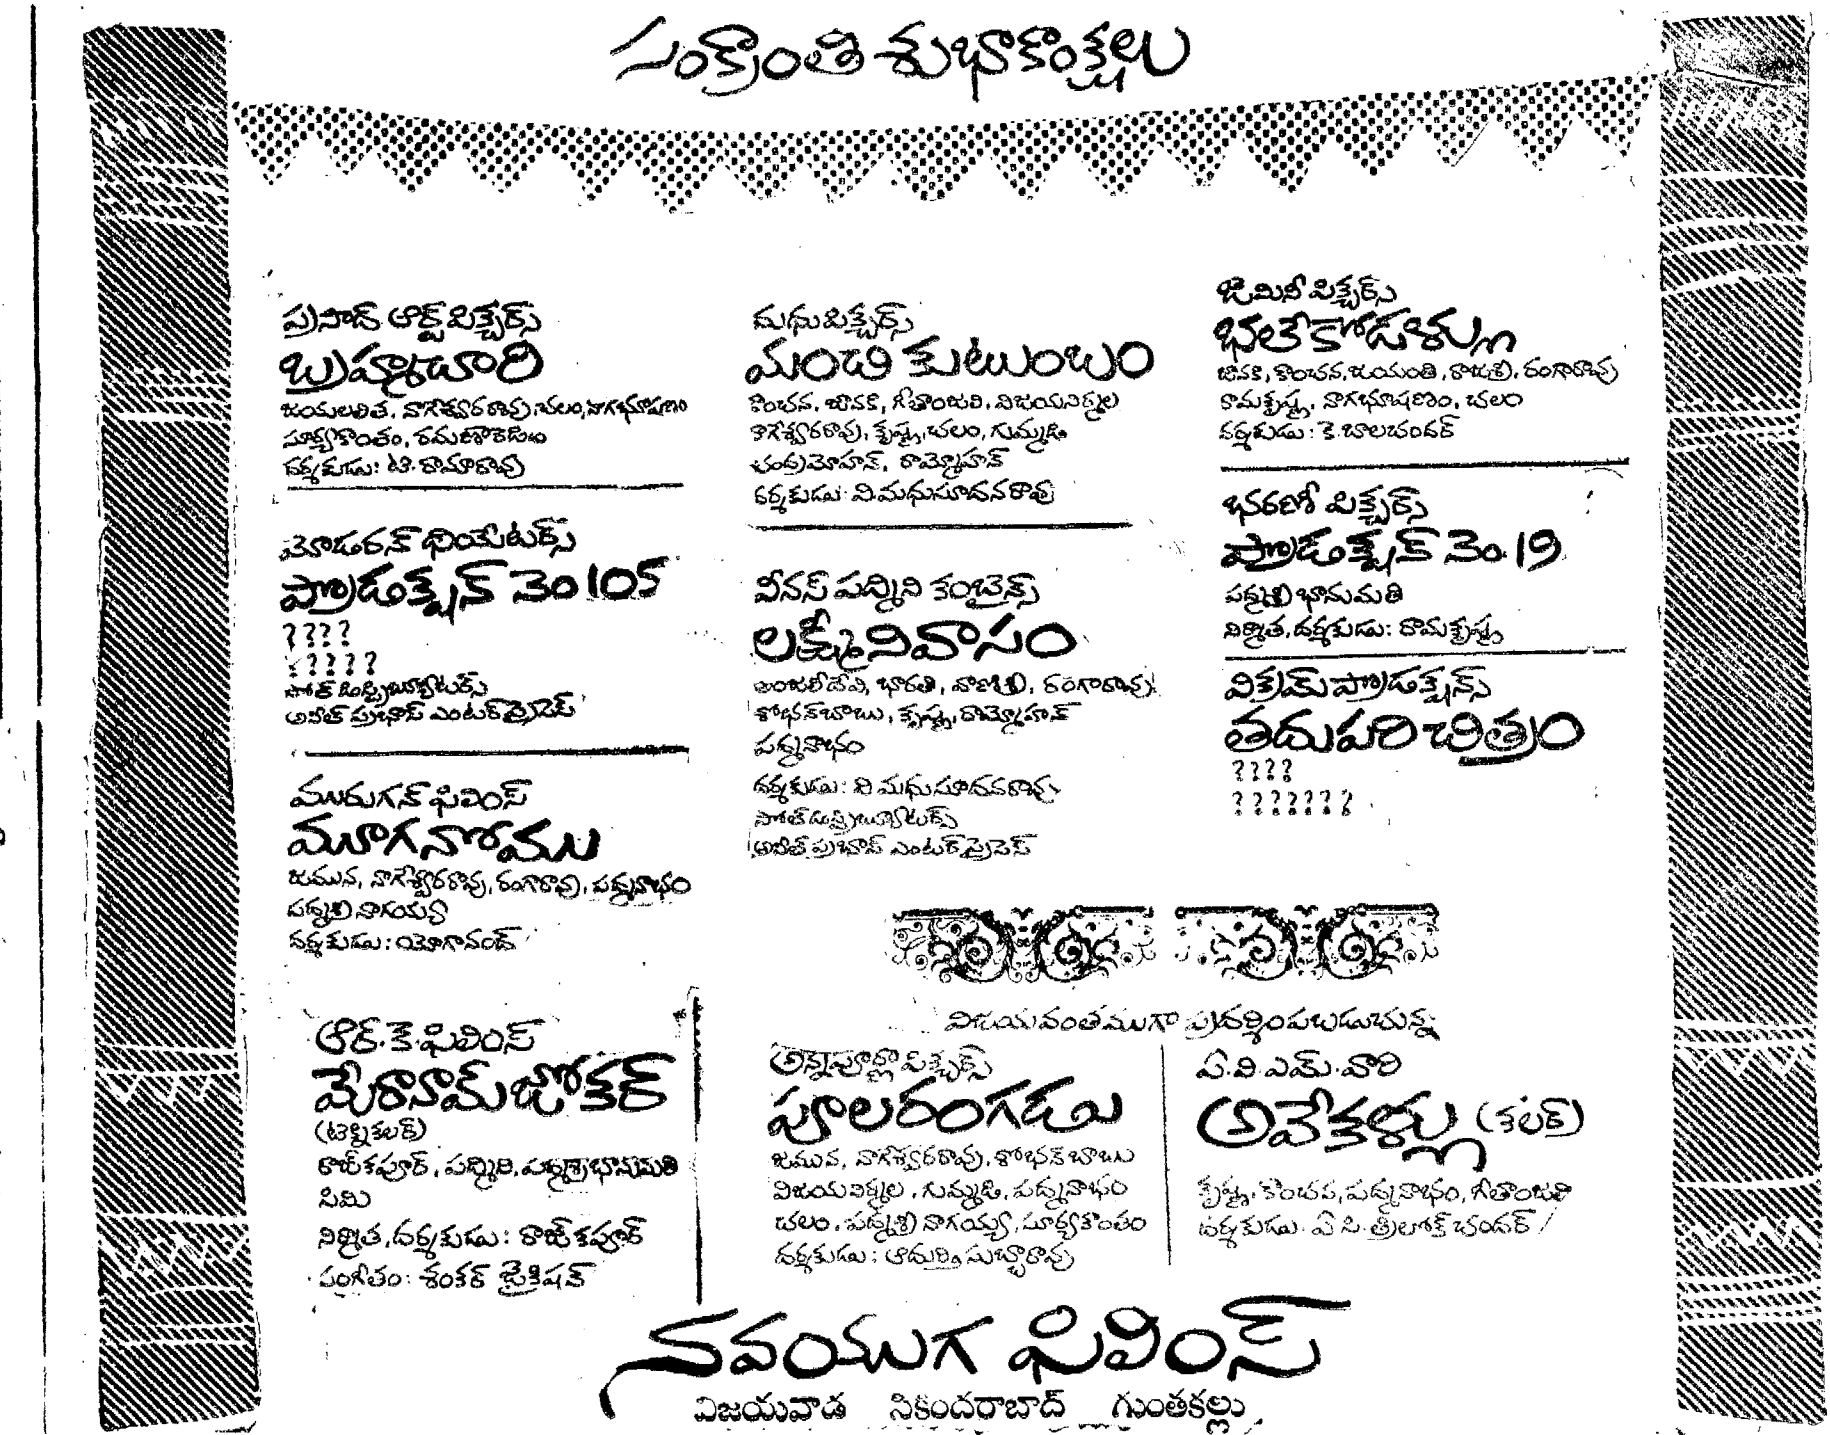 సంక్రాంతి శుభాకాంక్షలు
ప్రసాద్ ఆర్ట్ పిక్చర్స్
బ్రహ్మచారి
జయలలిత, నాగేశ్వరరావు, చలం, నాగభూషణం
సూర్యకాంతం, రమణారెడ్డి
దర్శకుడు: టి. రామారావు
మోడరన్ థియేటర్స్
ప్రొడక్షన్ నెం 105
????
?????
పోత్ డిస్ట్రిబ్యూటర్స్
అనీత్ ప్రభాస్ ఎంటర్ ప్రైసెస్
మురుగన్ ఫిలింస్
మూగనోము
జమున, నాగేశ్వరరావు, రంగారావు, పద్మనాభం
పద్మశ్రీ నాగయ్య
దర్శకుడు: యోగానంద్
ఆర్. కె. ఫిలింస్
మేరానామ్ జోకర్
(టెక్నికలర్)
రాజ్ కపూర్, పద్మిని, పద్మశ్రీ భానుమతి
సిమి
నిర్మిత, దర్శకుడు: రాజ్ కపూర్
సంగీతం: శంకర్ జైకిషన్
మధు పిక్చర్స్
మంచి కుటుంబం
కాంచన, జానకి, గీతాంజలి, విజయనిర్మల
నాగేశ్వరరావు, కృష్ణ, చలం, గుమ్మడి
చంద్రమోహన్, రామ్మోహన్
దర్శకుడు: వి. మధుసూదనరావు
వీనస్ పద్మిని కంబైన్స్
లక్ష్మీనివాసం
అంజలీదేవి, భారతి, వాణిశ్రీ, రంగారావు
శోభన్ బాబు, కృష్ణ, రామ్మోహన్
పద్మనాభం
దర్శకుడు: వి మధుసూదనరావు
పోత్ డిస్ట్రిబ్యూటర్స్
అనీత్ ప్రభాస్ ఎంటర్ ప్రైసెస్
జెమినీ పిక్చర్స్
భలేకోడళ్ళు
జానకి, కాంచన, జయంతి, రాజశ్రీ, రంగారావు
రామకృష్ణ, నాగభూషణం, చలం
దర్శకుడు: కె. బాలచందర్
భరణీ పిక్చర్స్
ప్రొడక్షన్ నెం. 19
పద్మశ్రీ భానుమతి
నిర్మిత, దర్శకుడు: రామకృష్ణ
విక్రమ్ ప్రొడక్షన్స్
తదుపరి చిత్రం
????
???????
విజయవంతముగా ప్రదర్శింపబడుచున్న
అన్నపూర్ణా పిక్చర్స్
పూలరంగడు
జమున, నాగేశ్వరరావు, శోభన్ బాబు
విజయనిర్మల, గుమ్మడి, పద్మనాభం
చలం, పద్మశ్రీ నాగయ్య, సూర్యకాంతం
దర్శకుడు: ఆదుర్తి సుబ్బారావు
ఏ. వి. ఎమ్. వారి
అవేకళ్లు (కలర్)
కృష్ణ, కాంచన, పద్మనాభం, గీతాంజలి
దర్శకుడు. ఏ. సి. త్రిలోక్ చందర్
నవయుగ ఫిలింస్
విజయవాడ సికిందరాబాద్ గుంతకల్లు